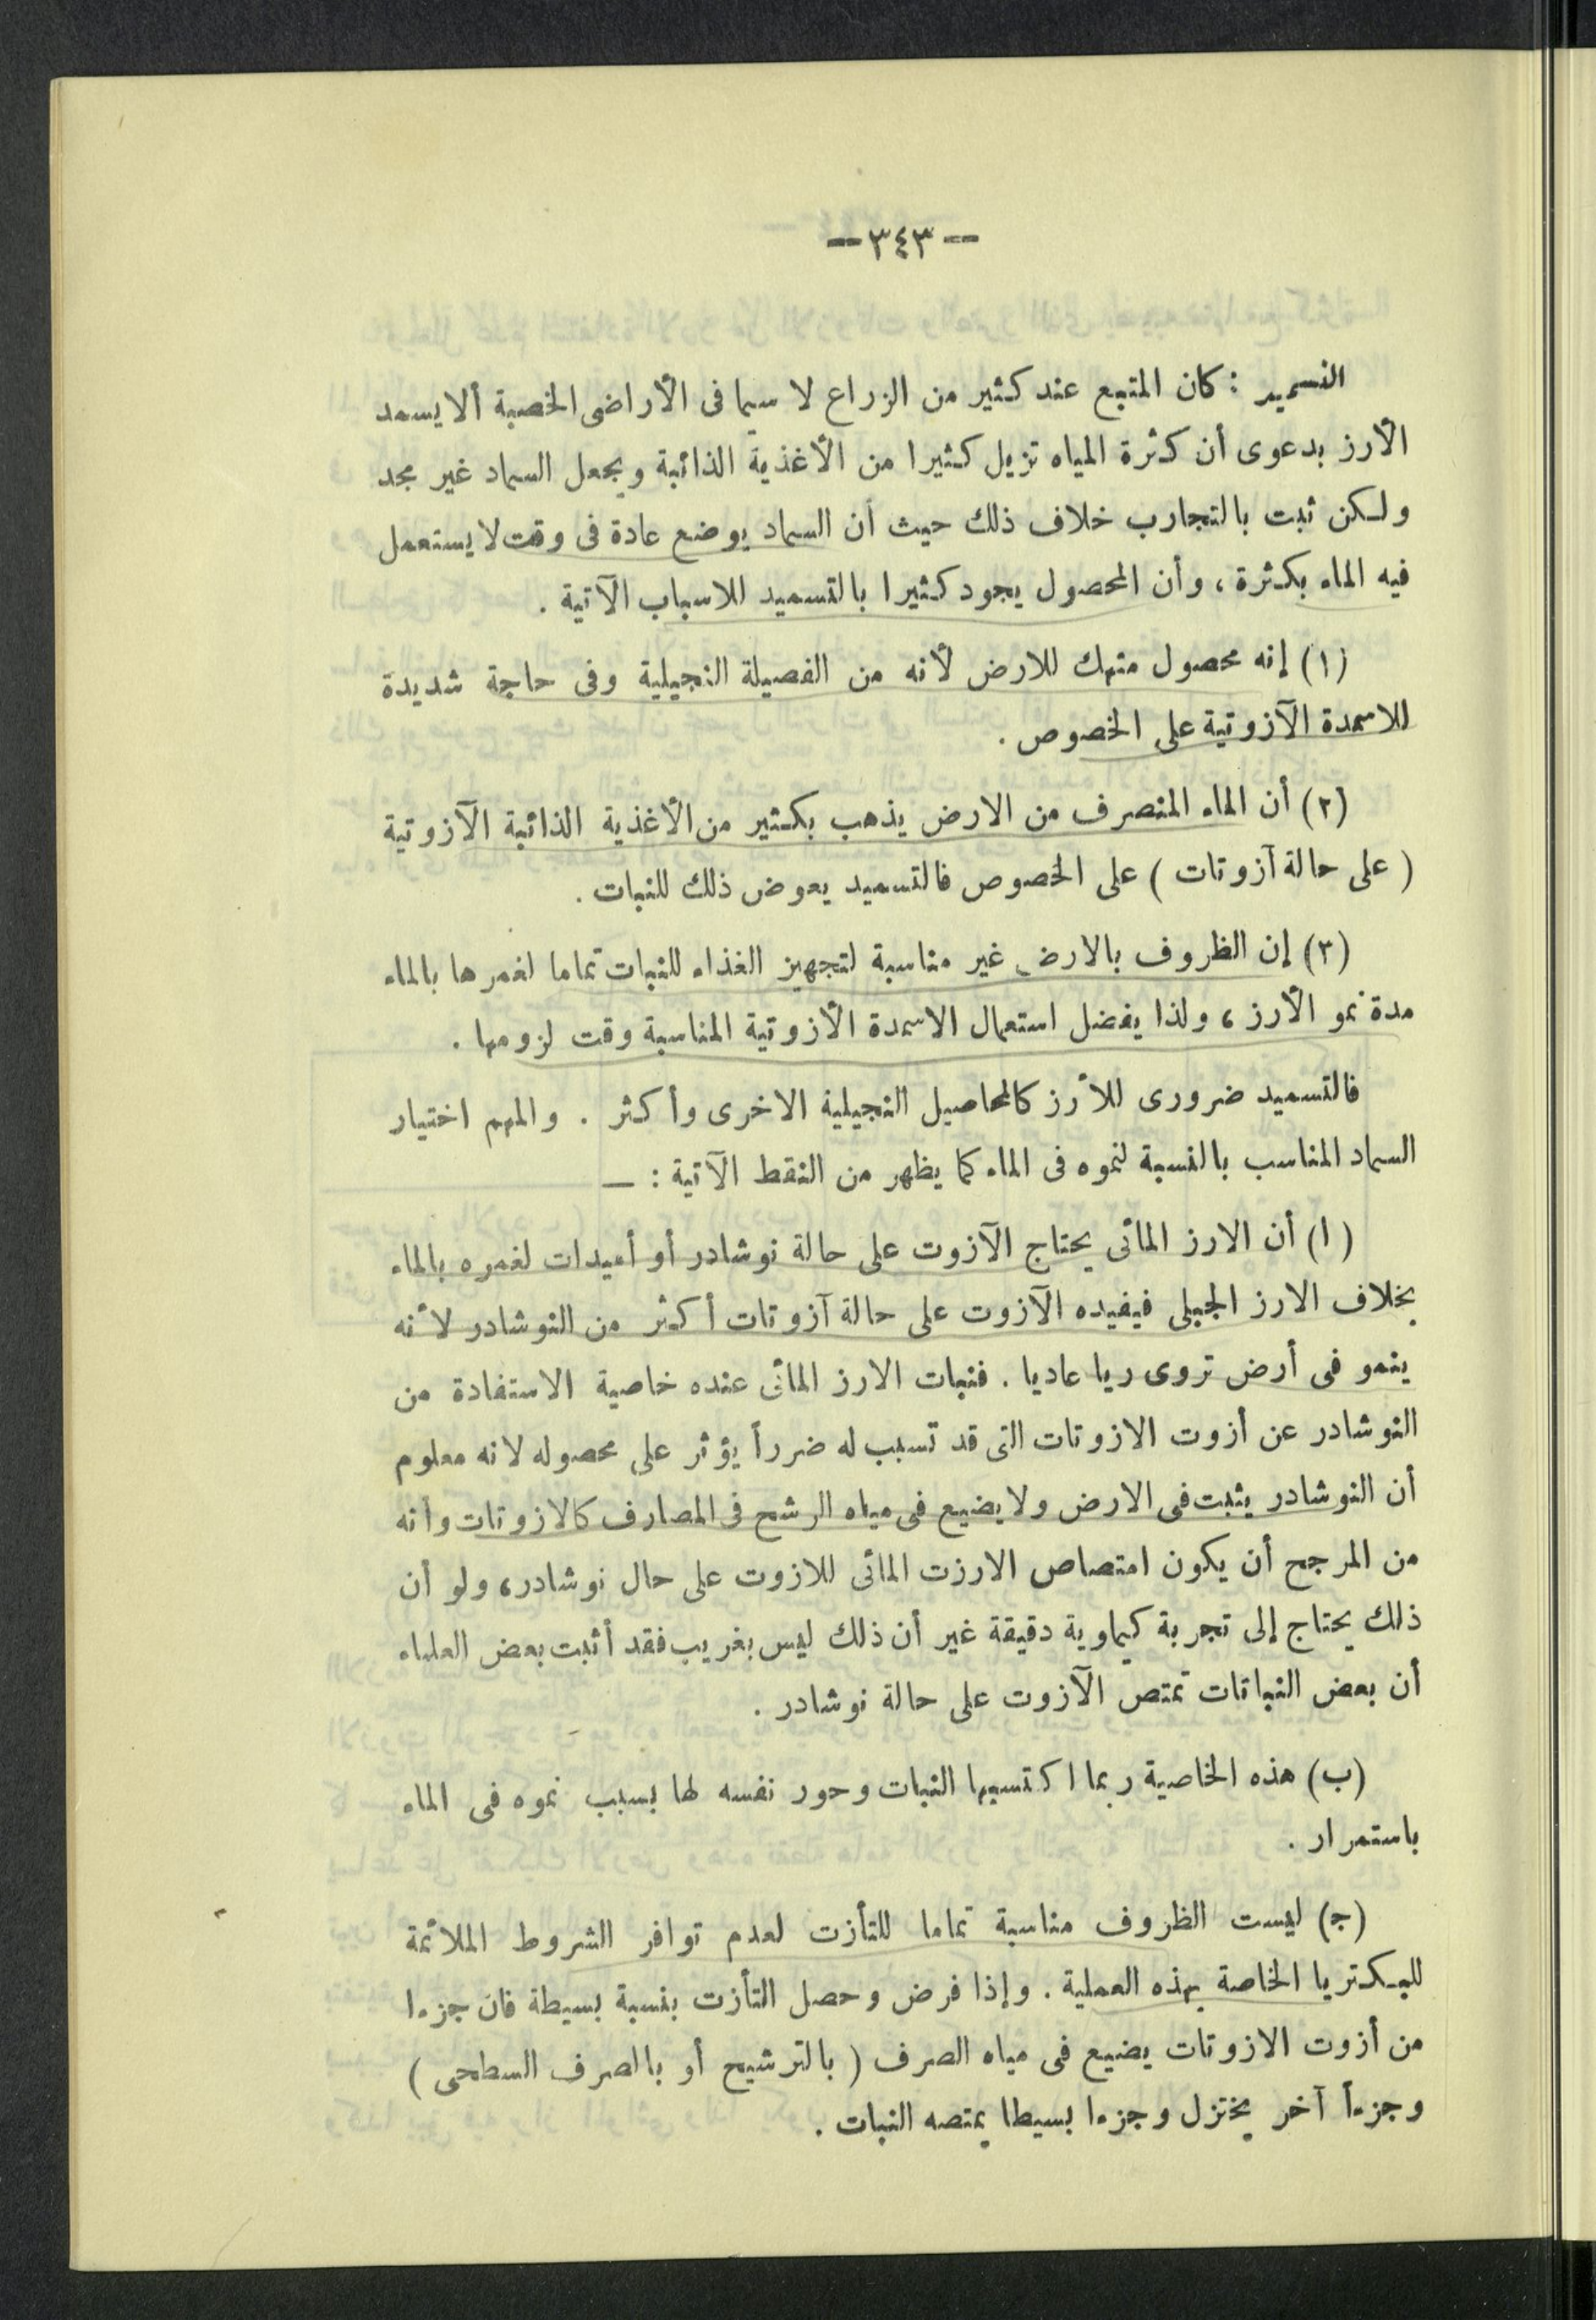 —٣٤٣—
التسميد : كان المتبع عند كثير من الزراع لا سيما فى الأراضى الخصبة ألا يسمد
الأرز بدعوى أن كثرة المياه تزيل كثيرا من الأغذية الذائبة ويجعل السماد غير مجد
ولكن ثبت بالتجارب خلاف ذلك حيث أن السماد يوضع عادة فى وقت لا يستعمل
فيه الماء بكثرة ، وأن المحصول يجود كثيرا بالتسميد للاسباب الآتية .
(١) إنه محصول منهك للارض لأنه من الفصيلة النجيلية وفى حاجة شديدة
للاسمدة الآزوتية على الخصوص .
(٢) أن الماء المنصرف من الارض يذهب بكثير من الأغذية الذائبة الآزوتية
( على حالة آزوتات ) على الخصوص فالتسميد يعوض ذلك للنبات .
(٣) إن الظروف بالارض غير مناسبة لتجهيز الغذاء للنبات تماما لغمرها بالماء
مدة نمو الأرز ، ولذا يفضل استعمال الاسمدة الأزوتية المناسبة وقت لزومها .
فالتسميد ضرورى للأرز كالمحاصيل النجيلية الاخرى وأكثر . والمهم اختيار
السماد المناسب بالنسبة لنموه فى الماء كما يظهر من النقط الآتية : —
(ا) أن الارز المائى يحتاج الآزوت على حالة نوشادر أو أميدات لغمره بالماء
بخلاف الارز الجبلى فيفيده الآزوت على حالة آزوتات أكثر من النوشادر لأنه
ينمو فى أرض تروى ريا عاديا . فنبات الارز المائى عنده خاصية الاستفادة من
النوشادر عن أزوت الازوتات التى قد تسبب له ضرراً يؤثر على محصوله لانه معلوم
أن النوشادر يثبت فى الارض ولا يضيع فى مياه الرشح فى المصارف كالازوتات وأنه
من المرجح أن يكون امتصاص الارزت المائى للازوت على حال نوشادر ، ولو أن
ذلك يحتاج إلى تجربة كيماوية دقيقة غير أن ذلك ليس بغريب فقد أثبت بعض العلماء
أن بعض النباتات تمتص الآزوت على حالة نوشادر .
(ب) هذه الخاصية ربما اكتسبها النبات وحور نفسه لها بسبب نموه فى الماء
باستمرار .
(ج) ليست الظروف مناسبة تماما للتأزت لعدم توافر الشروط الملائمة
للبكتريا الخاصة بهذه العملية . وإذا فرض وحصل التأزت بنسبة بسيطة فان جزءا
من أزوت الازوتات يضيع فى مياه الصرف ( بالترشيح أو بالصرف السطحى )
وجزءاً آخر يختزل وجزءا بسيطا يمتصه النبات .